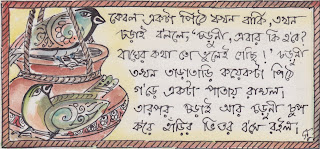 কেবল একটা পিঠে যখন বাকি, তখন
চড়াই বললে, "চড়ুনী, এবার কি হবে?
বাঘের কথা তো ভুলেই গেছি!" চড়ুনী
তখন তাড়াতাড়ি কয়েকটা পিঠে
গ'ড়ে একটা পাতায় রাখল।
তারপর চড়াই আর চড়ুনী চুপ
করে হাঁড়ির ভিতর বসে রইল।